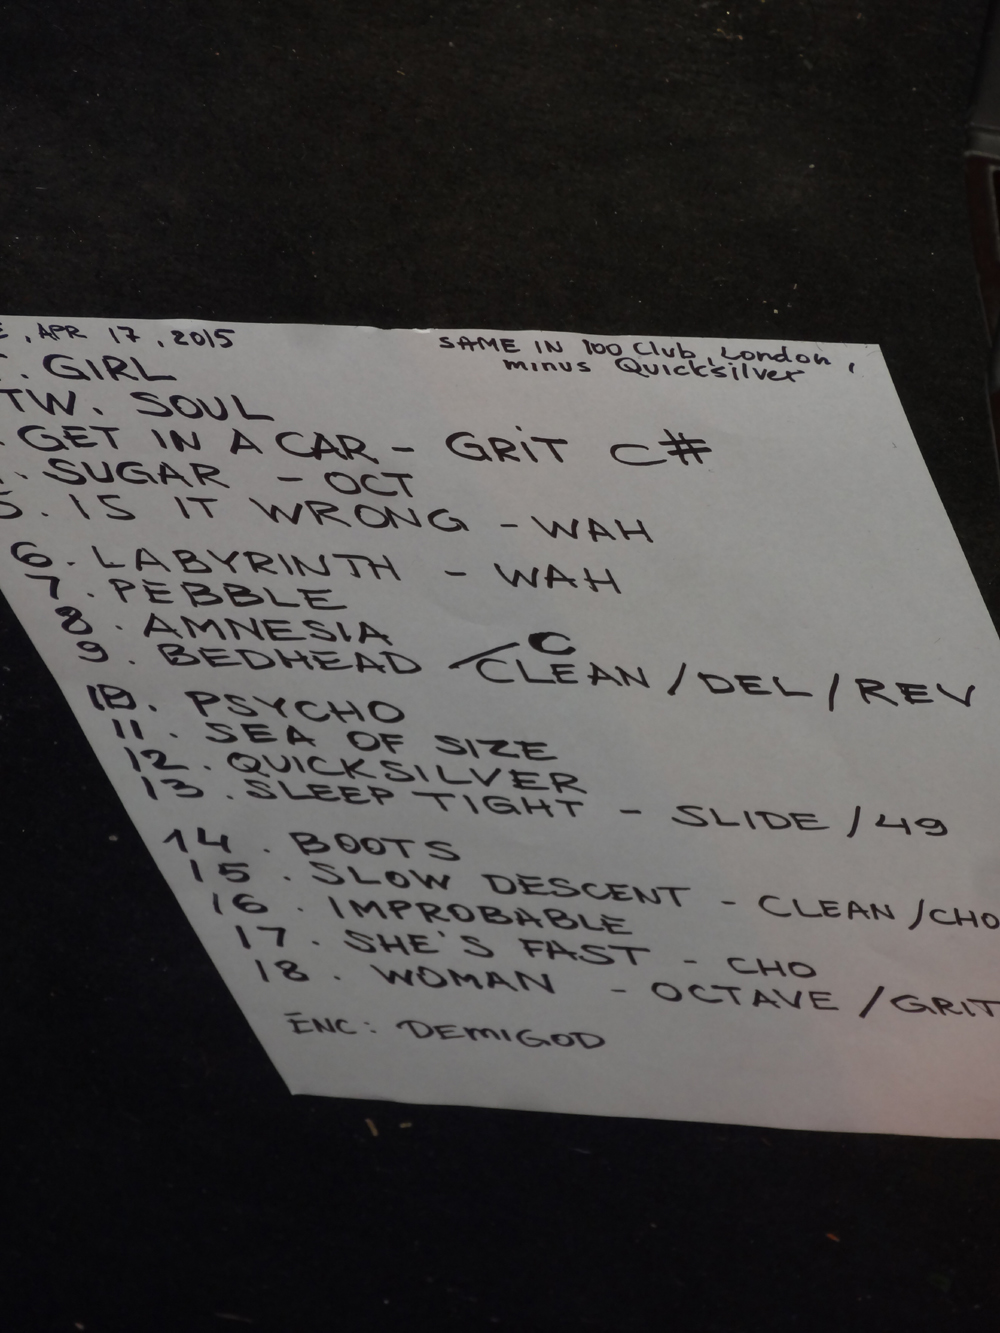 , APR 17, 2015
SAME IN 100 Club, London,
minus Quicksilver
. GIRL
TW. SOUL
. GET IN A CAR - GRIT C#
. SUGAR - OCT
5. IS IT WRONG - WAH
6. LABYRINTH - WAH
7. PEBBLE
8. AMNESIA
9. BEDHEAD - C CLEAN / DEL / REV
10. PSYCHO
11. SEA OF SIZE
12. QUICKSILVER
13. SLEEP TIGHT - SLIDE / 49
14. BOOTS
15. SLOW DESCENT - CLEAN / CHO
16. IMPROBABLE
17. SHE'S FAST - CHO
18. WOMAN - OCTAVE / GRIT
ENC: DEMIGOD